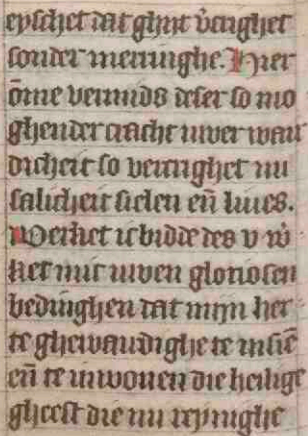 eyschet dat ghijt v̄crighet
sonder merringhe. Hier
ōme vermids deser so mo
ghender cracht uwer waer
dicheit so vercrighet mi
salicheit sielen eñ lives.
Werket ic bidde des v w̄
ket mit uwen gloriosen
bedinghen dat mijn her
te ghewaerdighe te
eñ te inwonen die heilighe
gheest die mi reynighe